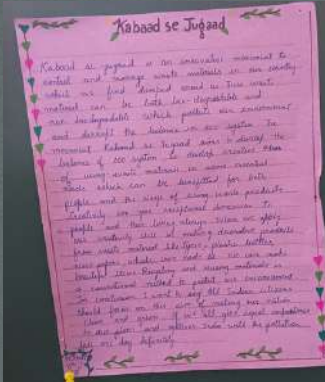 Kabaad se Jugaad
Kabaad se jugaad is an innovative movement to
control and manage waste materials in our country
which we find dumped around us. These waste
material can be both bio-degradable and
non biodegradable which pollute our environment
and disrupt the balance in eco system. The
movement Kabaad se Jugaad aims to the
balance of eco system to develop creative
of using waste materials in some creative
made which can be benefitted for both
people and the ways of using waste products
creatively can give exceptional dimension to
people and their lives always. When we apply
our creativity skill in making decorative products
from waste material like tyres, plastic bottles,
news papers, wheels, iron rods etc. we can make
beautiful items. Recycling and reusing materials is
a conventional method to protect our environment
In conclusion I want to say All Indian citizens
should focus on this aim of making our nation
clean and green. If we all give equal importance
to this plan and India will be pollution
free one day definitely.